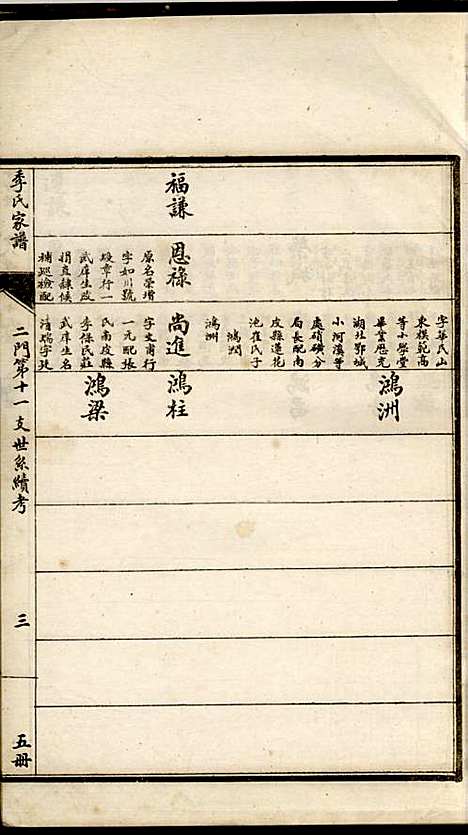 福謙
恩祿
原名榮增
字如川號
峻章行一
武庠生改
捐直隸候
補巡檢配
字華民山
東模範高
等小學堂
畢業歷充
湖北鄂城
小河溪等
處硝磺分
局長配南
皮縣蓮花
池崔氏子
鴻潤
鴻洲
尚進
字文甫行
一元配張
氏南皮縣
季保民莊
武庠生名
清瑞字廷
鴻洲
鴻柱
鴻梁
季氏家譜
二門第十一支世系續考
三
五冊